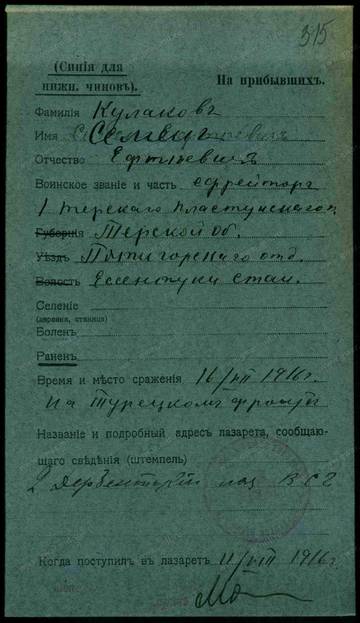 315
(Синія для
нижн. чиновъ).
На прибывшихъ.
Фамилія Кулаковъ
Имя Семенъ
Отчество
Воинское званіе и часть ефрейторъ
1 Терскаго пластунскаго
Губернія Терской об.
Уѣздъ Пятигорскаго отд.
Волость Ессентуки стан.
Селеніе
(деревня, станица)
Боленъ
Раненъ
Время и мѣсто сраженія 16/VII 1916 г.
на Турецкомъ фронтѣ
Названіе и подробный адресъ лазарета, сообщаю-
щаго свѣдѣнія (штемпель)
2 Дербентскій лаз. ВСГ
Когда поступилъ въ лазаретъ 11/VIII 1916 г.